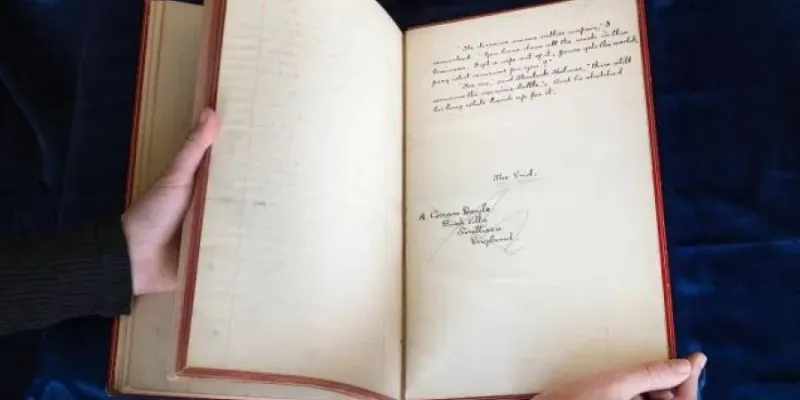 "The division seems rather unfair," I
remarked. "You have done all the work in this
business. I get a wife out of it, Jones gets the credit,
pray what remains for you?"
"For me," said Sherlock Holmes, "there still
remains the cocaine-bottle". And he stretched
his long white hand up for it.
The End.
A Conan Doyle
Bush Villa
Southsea
England